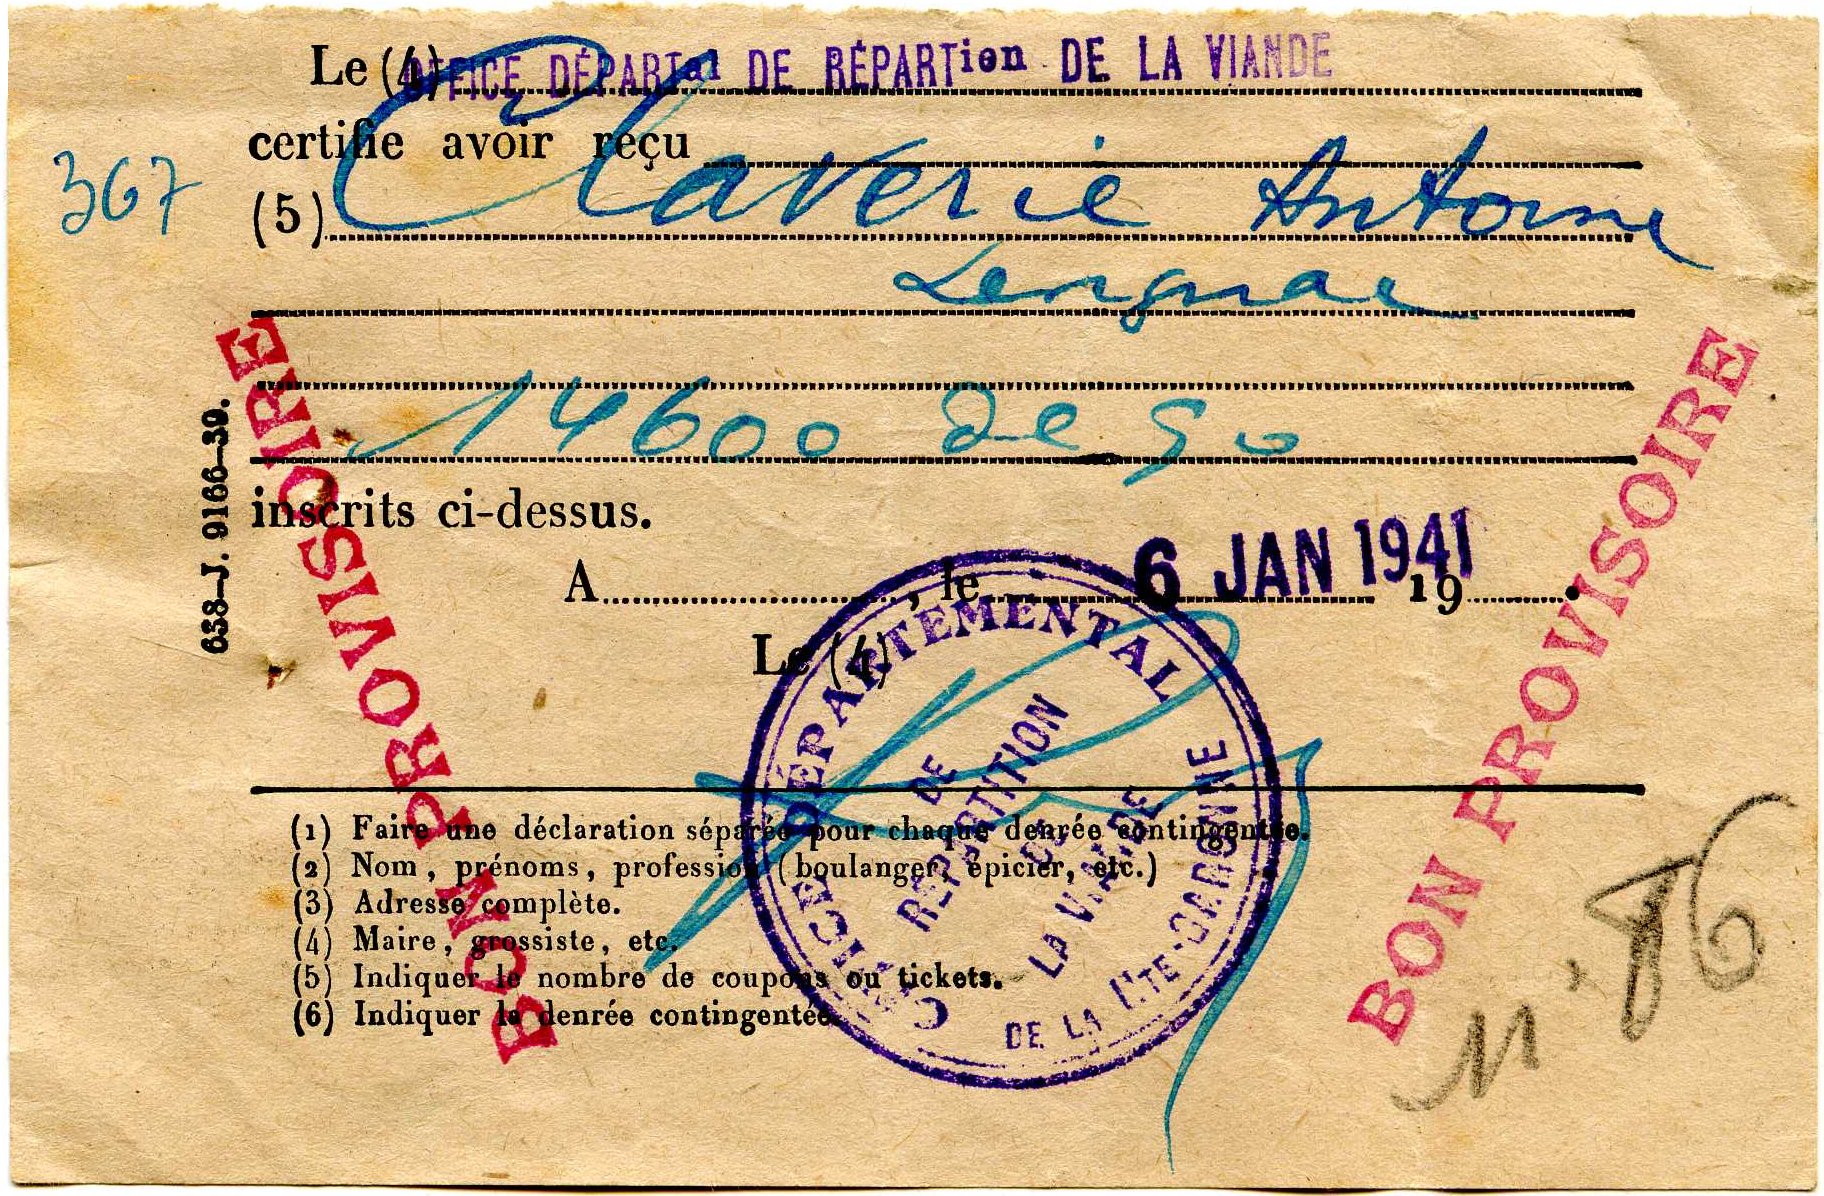 Le (4) OFFICE DÉPARTal DE RÉPARTion DE LA VIANDE
certifie avoir reçu
367
(5) Claverie Antoine
14600 de 90
inscrits ci-dessus.
A , le 6 JAN 1941 19 .
Le (4)
638-J. 9166-39.
BON PROVISOIRE
BON PROVISOIRE
OFFICE DÉPARTEMENTAL
DE
RÉPARTITION
DE
LA VIANDE
DE LA HTE-GARONNE
(1) Faire une déclaration séparée pour chaque denrée contingentée.
(2) Nom, prénoms, profession (boulanger, épicier, etc.)
(3) Adresse complète.
(4) Maire, grossiste, etc.
(5) Indiquer le nombre de coupons ou tickets.
(6) Indiquer la denrée contingentée.
N° 86